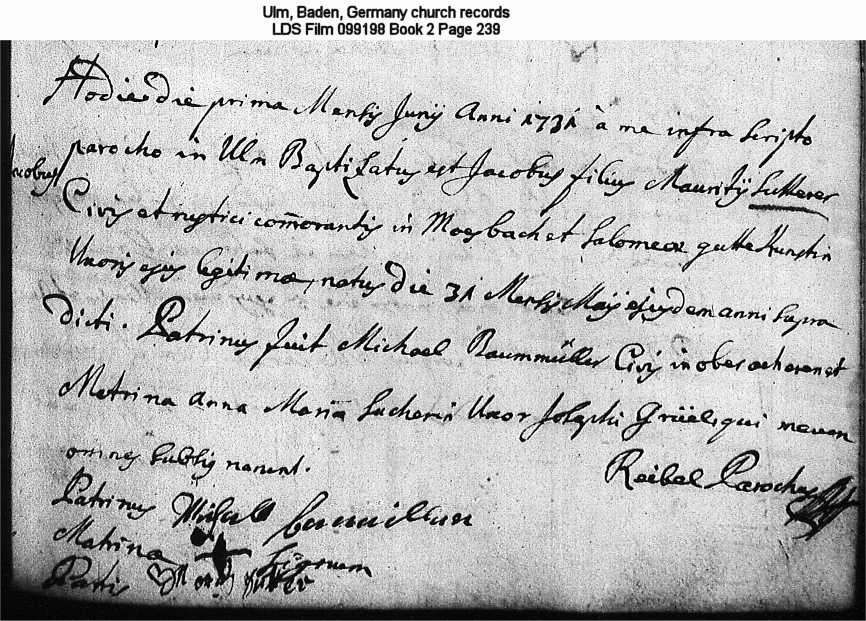 Ulm, Baden, Germany church records
LDS Film 099198 Book 2 Page 239
Hodie die prima Mensis Junij Anni 1731 à me infra scripto
Jacobus
parocho in Ulm Baptizatus est Jacobus filius Mauritij Sutterer
Civis et rustici com̄orantis in Moesbach et Salomeæ gutte Kunstin
Uxoris ejus legitimæ, natus die 31 Mensis Maij ejusdem anni supra
dicti. Patrinus fuit Michael Baummüller Civis in oberacheren et
Matrina Anna Maria Sucherin Uxor Josephi Grüel, qui mecum
omnes subsignarunt.
Reibel Parochus
Patrinus
Matrina signum
Patris